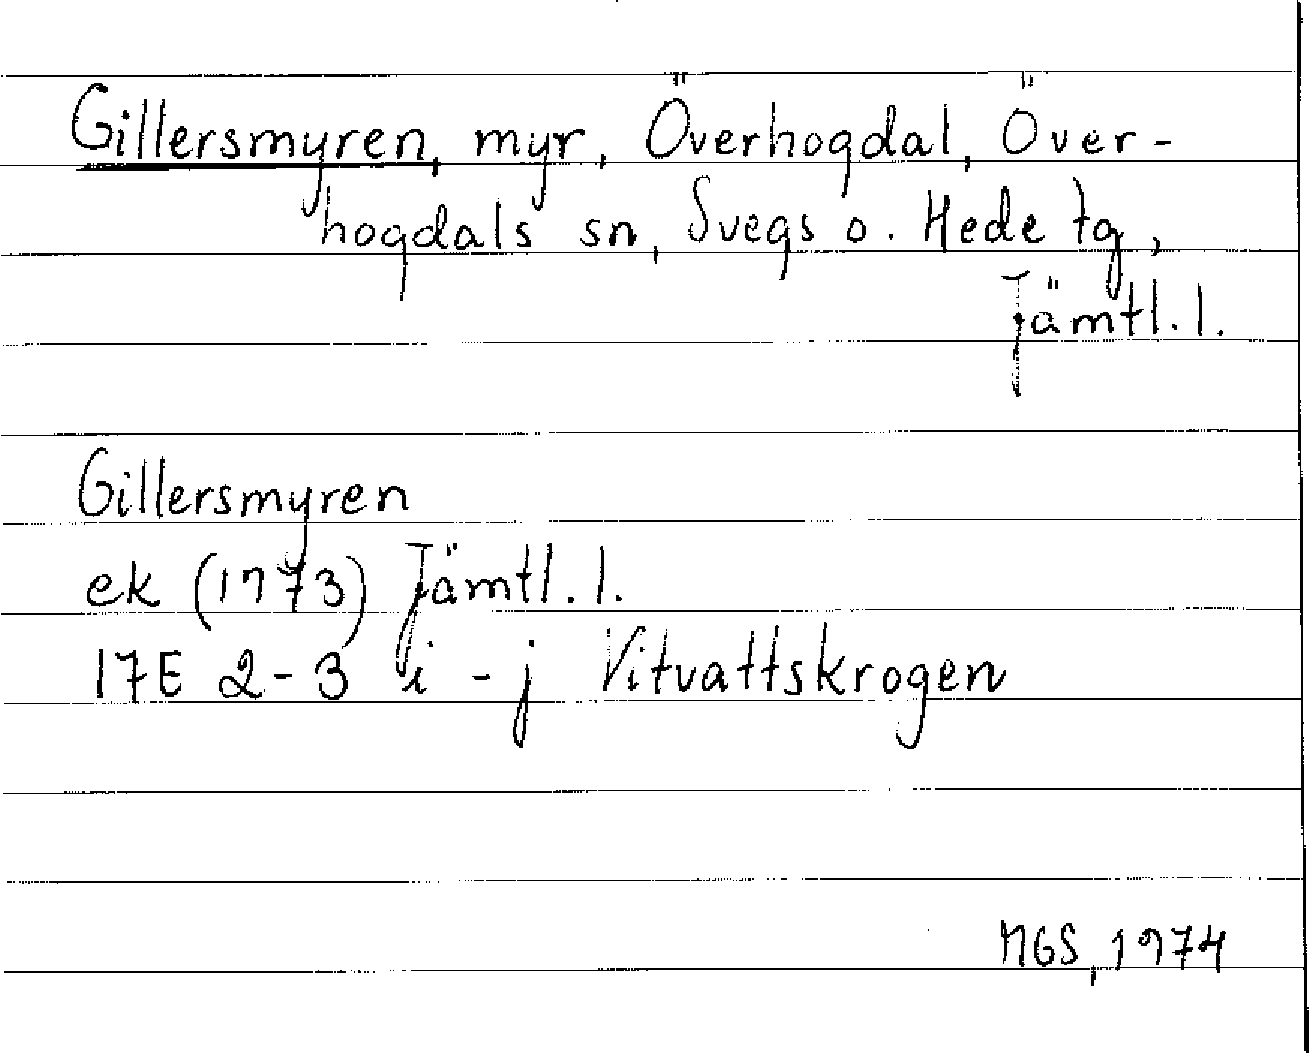 Gillersmyren, myr, Överhogdal, Över-
hogdals sn, Svegs o. Hede tg,
Jämtl. l.
Gillersmyren
ek (1973) Jämtl. l.
17E 2-3 i - j Vitvattskrogen
MGS, 1974